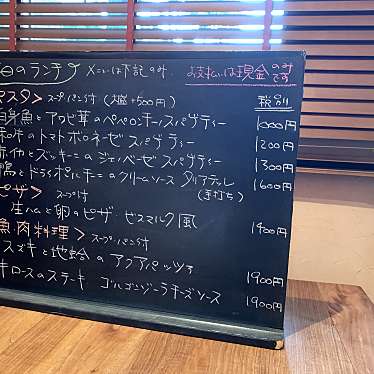 日のランチ メニューは下記のみ.
お支払いは現金のみです
パスタ> スープ パン付 (大盛+500円) 税別
白身魚とアロピ草のペペロンチーノスパゲティー 1000円
味のトマトボロネーゼスパゲティー 1200円
とズッキーニのジェノベーゼスパゲティー 1300円
鴨とドライポルチーニのクリームソース タリアテッレ (手打ち) 1600円
ピザ> スープ付
生ハムと卵のピザ ビスマルク風 1400円
魚・肉料理> スープ・パン付
スズキと地蛤のアクアパッツァ 1900円
ロースのステーキ ゴルゴンゾーラチーズソース 1900円